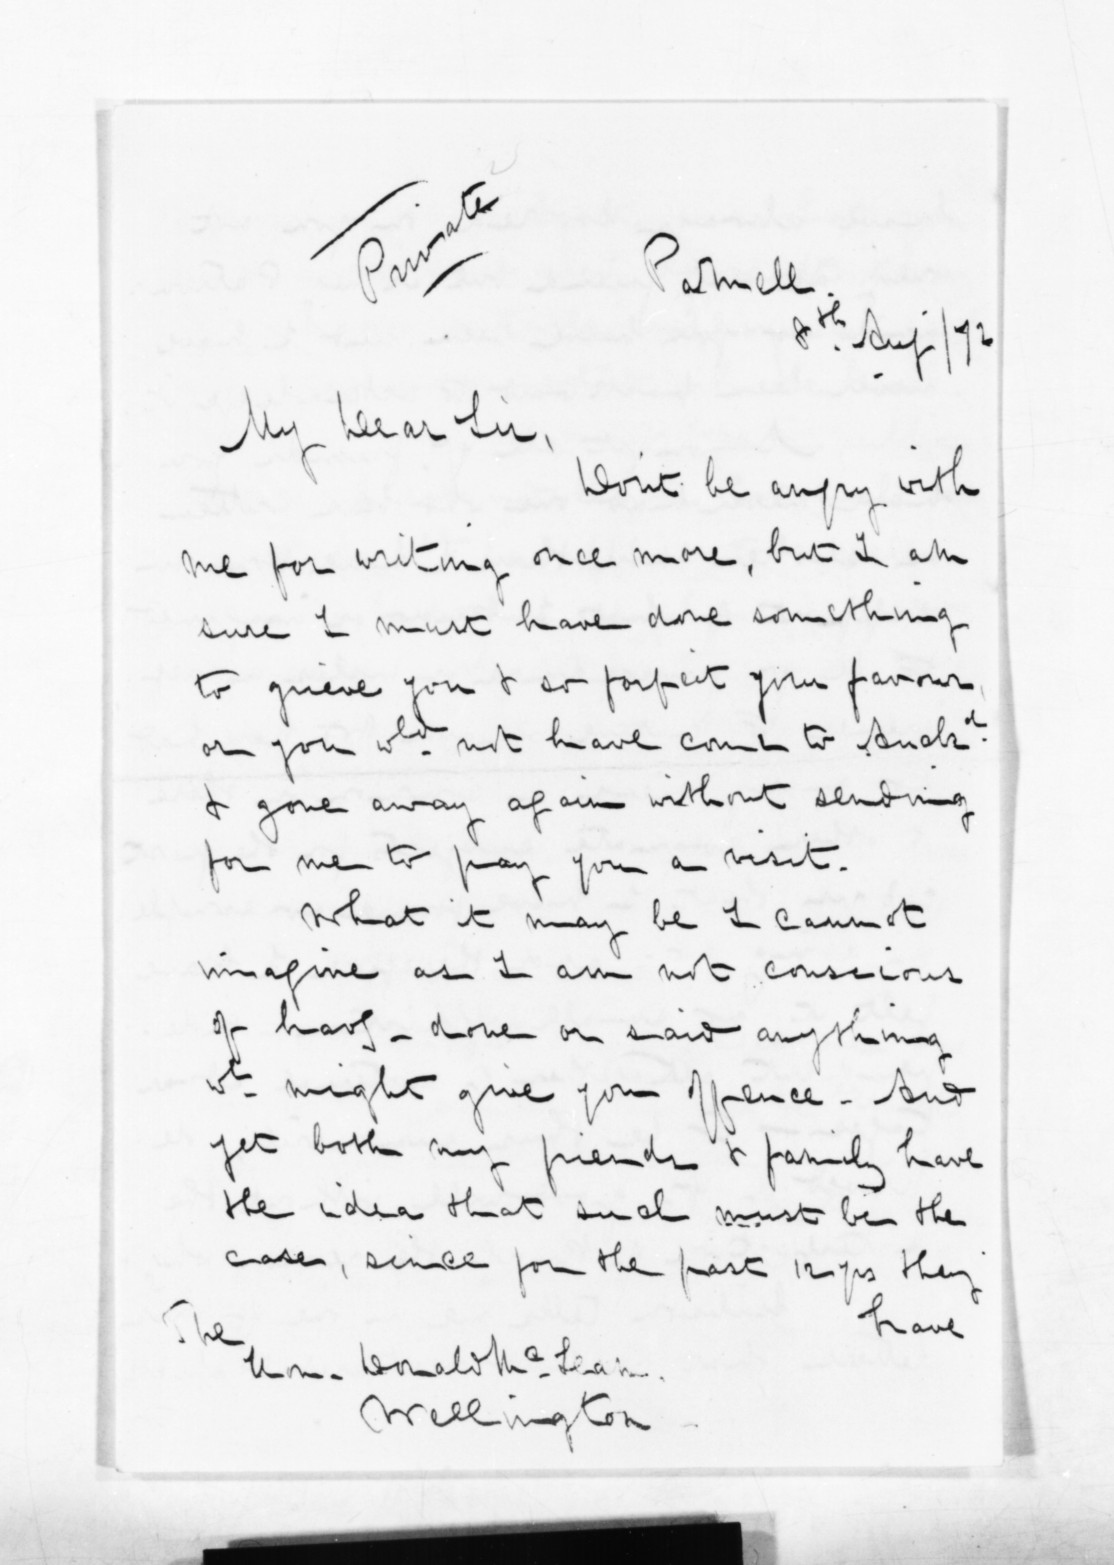 Private
Parnell.
8th. Aug/72
My Dear Sir,
Don't be angry with
me for writing once more, but I am
sure I must have done something
to grieve you & so forfeit your favour,
or you wld. not have come to Auckd.
& gone away again without sending
for me to pay you a visit.
What it may be I cannot
imagine as I am not conscious
of havg. done or said anything
wh. might give you offence - And
yet both my friends & family have
the idea that such must be the
case, since for the past 12 yrs they
have
The
Hon. Donald McLean.
Wellington